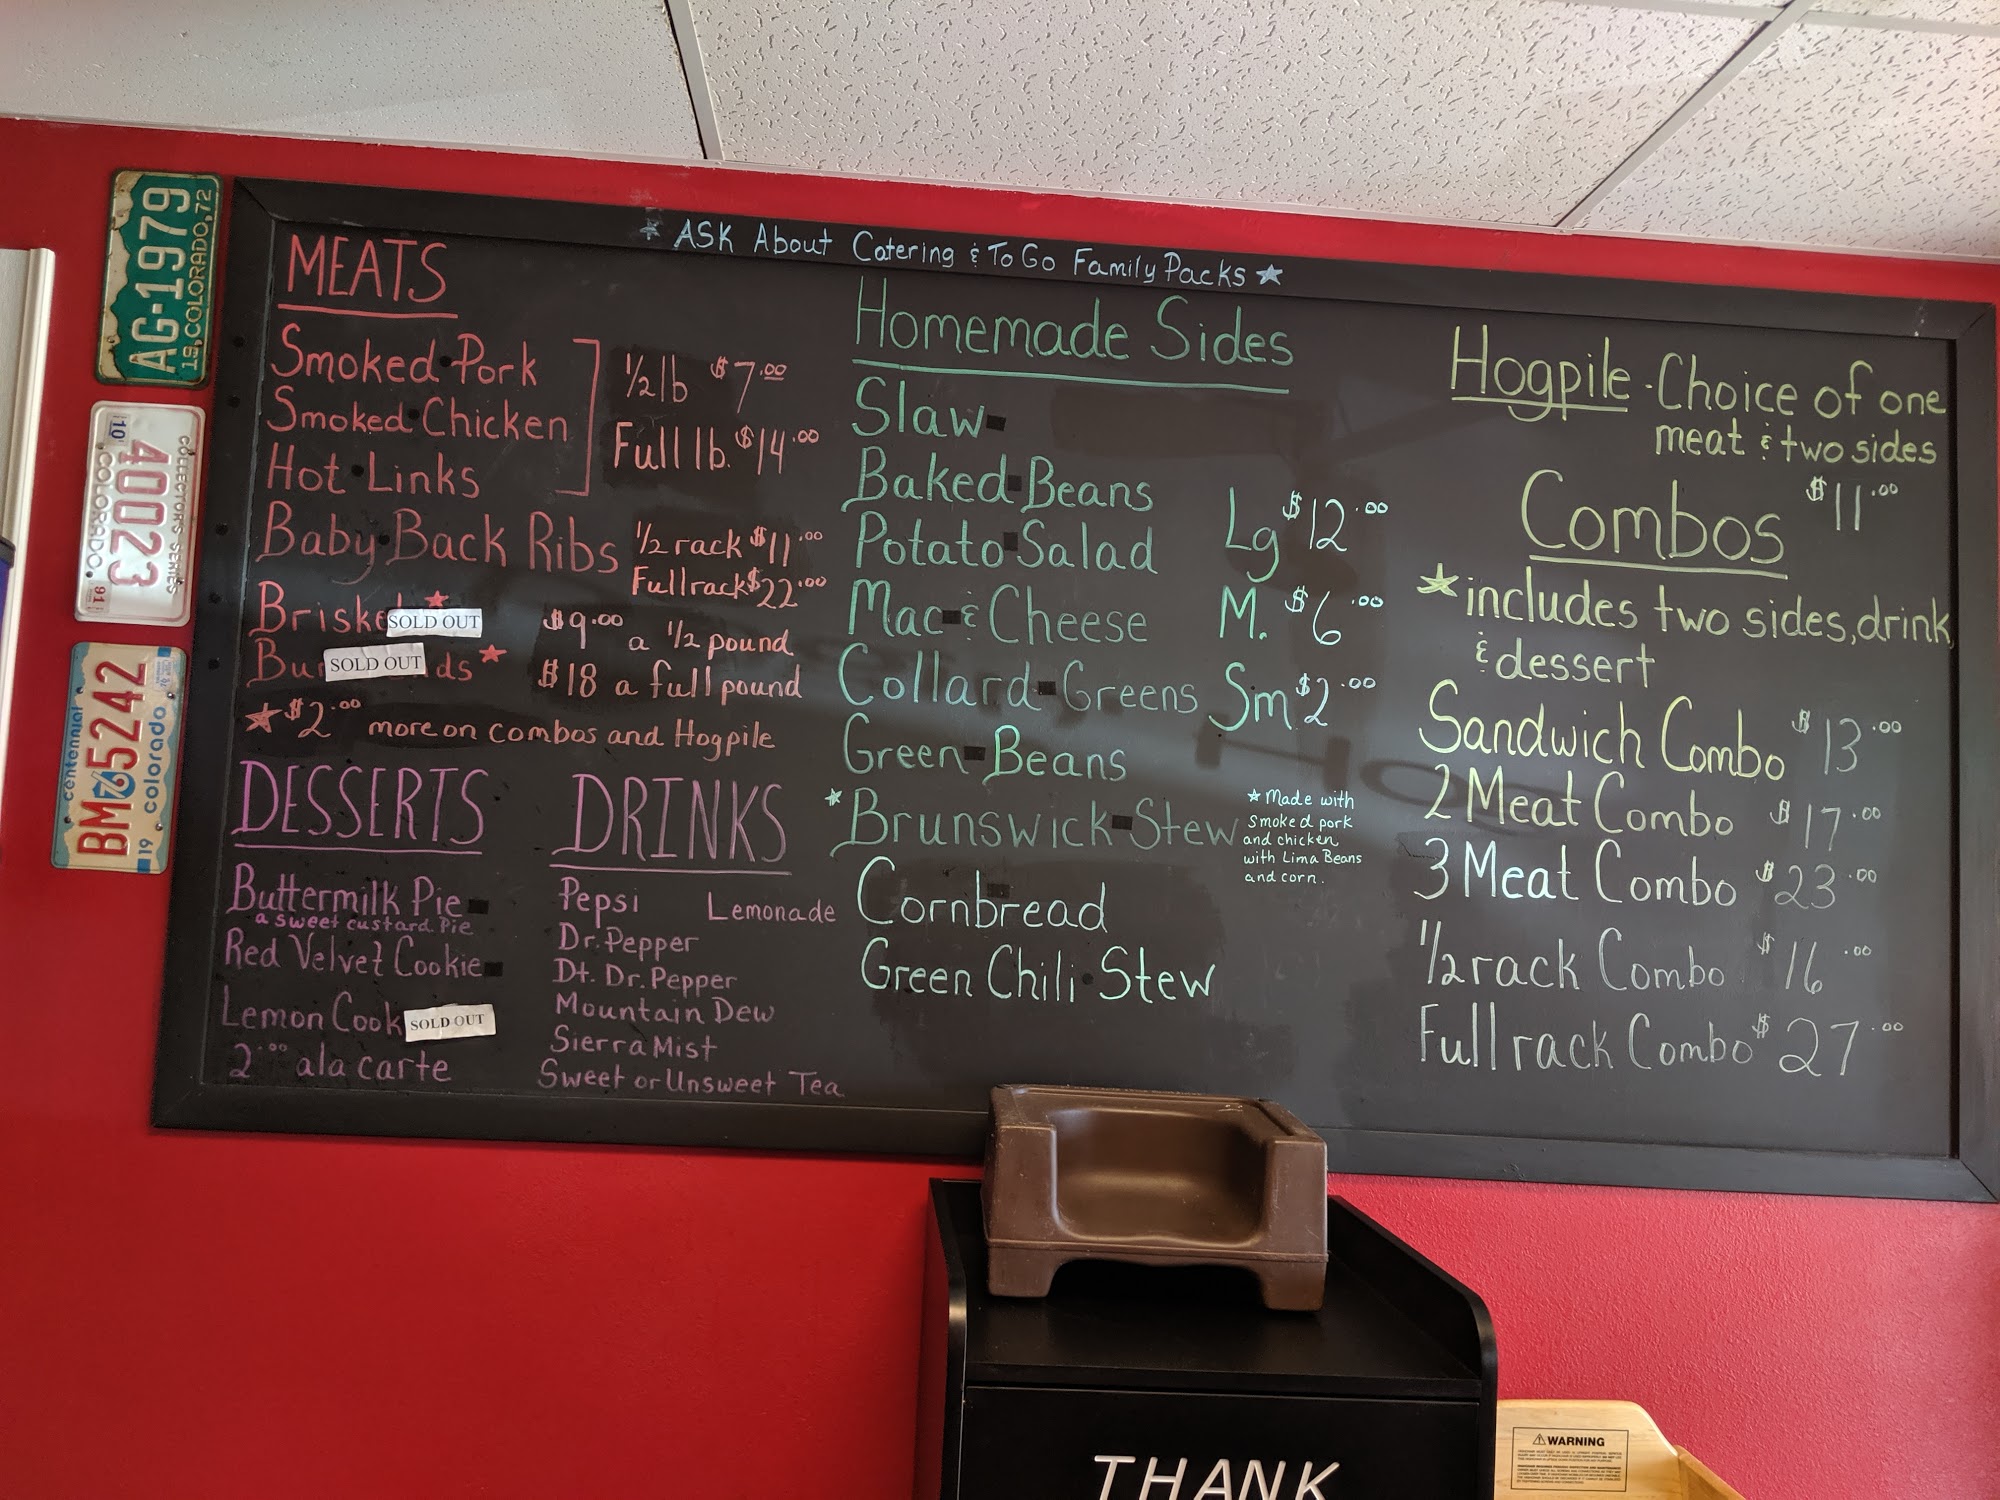 ★ ASK About Catering & To Go Family Packs ★
MEATS
Smoked Pork
Smoked Chicken
Hot Links
1/2 lb $7.00
Full lb. $14.00
Baby Back Ribs
1/2 rack $11.00
Full rack $22.00
Briske SOLD OUT ★
$9.00 a 1/2 pound
Bu SOLD OUT ds ★
$18 a full pound
★ $2.00 more on combos and Hogpile
DESSERTS
Buttermilk Pie
a sweet custard Pie
Red Velvet Cookie
Lemon Cook SOLD OUT
2.00 ala carte
DRINKS
Pepsi Lemonade
Dr. Pepper
Dt. Dr. Pepper
Mountain Dew
Sierra Mist
Sweet or Unsweet Tea
Homemade Sides
Slaw
Baked Beans
Potato Salad
Mac & Cheese
Collard Greens
Green Beans
*Brunswick Stew
Cornbread
Green Chili Stew
Lg $12.00
M. $6.00
Sm $2.00
★ Made with
smoked pork
and chicken
with Lima Beans
and corn.
Hogpile - Choice of one
meat & two sides
$11.00
Combos
★ includes two sides, drink,
& dessert
Sandwich Combo $13.00
2 Meat Combo $17.00
3 Meat Combo $23.00
1/2 rack Combo $16.00
Full rack Combo $27.00
AG-1979
19, COLORADO, 72
COLLECTOR'S SERIES
40023
10 COLORADO. 91
centennial
BM 5242
19 colorado
THANK
WARNING